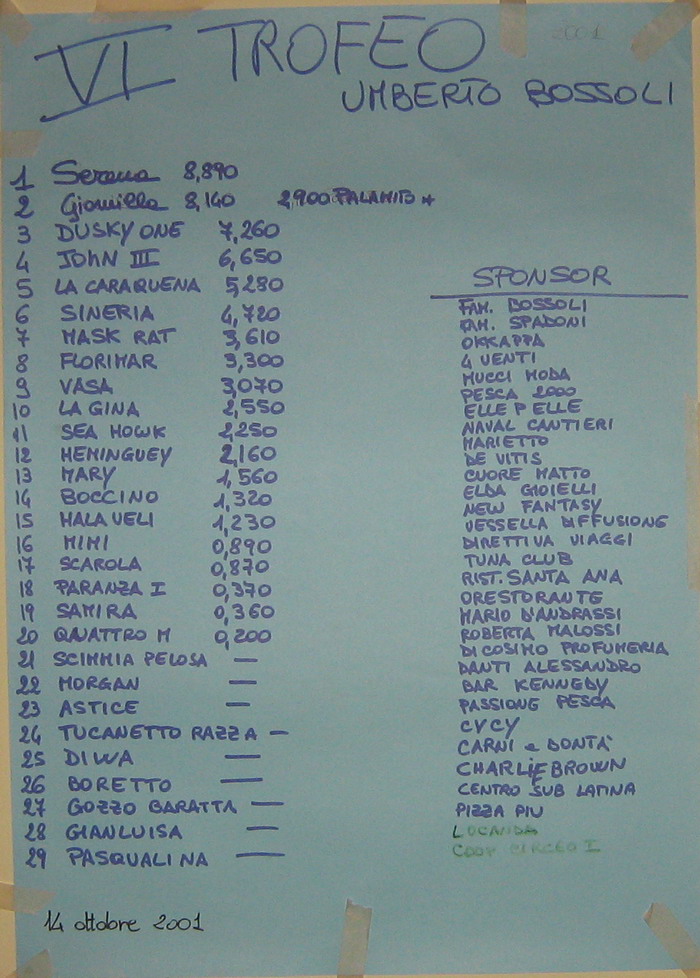 2001
VI TROFEO
UMBERTO BOSSOLI
1 Serena 8,890
2 Giomilla 8,140 2,900 PALAMITO *
3 DUSKY ONE 7,260
4 JOHN III 6,650
5 LA CARAQUENA 5,280
6 SINERIA 4,720
7 MASK RAT 3,610
8 FLORIMAR 3,300
9 VASA 3,070
10 LA GINA 2,550
11 SEA HOWK 2,250
12 HEMINGUEY 2,160
13 MARY 1,560
14 BOCCINO 1,320
15 MALA VELI 1,230
16 MIMI 0,890
17 SCAROLA 0,870
18 PARANZA I 0,370
19 SAMIRA 0,360
20 QUATTRO M 0,200
21 SCIMMIA PELOSA —
22 MORGAN —
23 ASTICE —
24 TUCANETTO RAZZA —
25 DIWA —
26 BORETTO —
27 GOZZO BARATTA —
28 GIANLUISA —
29 PASQUALINA —
14 ottobre 2001
SPONSOR
FAM. BOSSOLI
FAM. SPADONI
OKKAPPA
4 VENTI
MUCCI MODA
PESCA 2000
ELLE P ELLE
NAVAL CANTIERI
MARIETTO
DE VITIS
CUORE MATTO
ELDA GIOIELLI
NEW FANTASY
VESSELLA DIFFUSIONE
DIRETTIVA VIAGGI
TUNA CLUB
RIST. SANTA ANA
ORESTORANTE
MARIO D'ANDRASSI
ROBERTA MALOSSI
DI COSIMO PROFUMERIA
DANTI ALESSANDRO
BAR KENNEDY
PASSIONE PESCA
CYCY
CARNI e BONTA'
CHARLIE BROWN
CENTRO SUB LATINA
PIZZA PIU
LOCANDA
COOP CIRCEO I